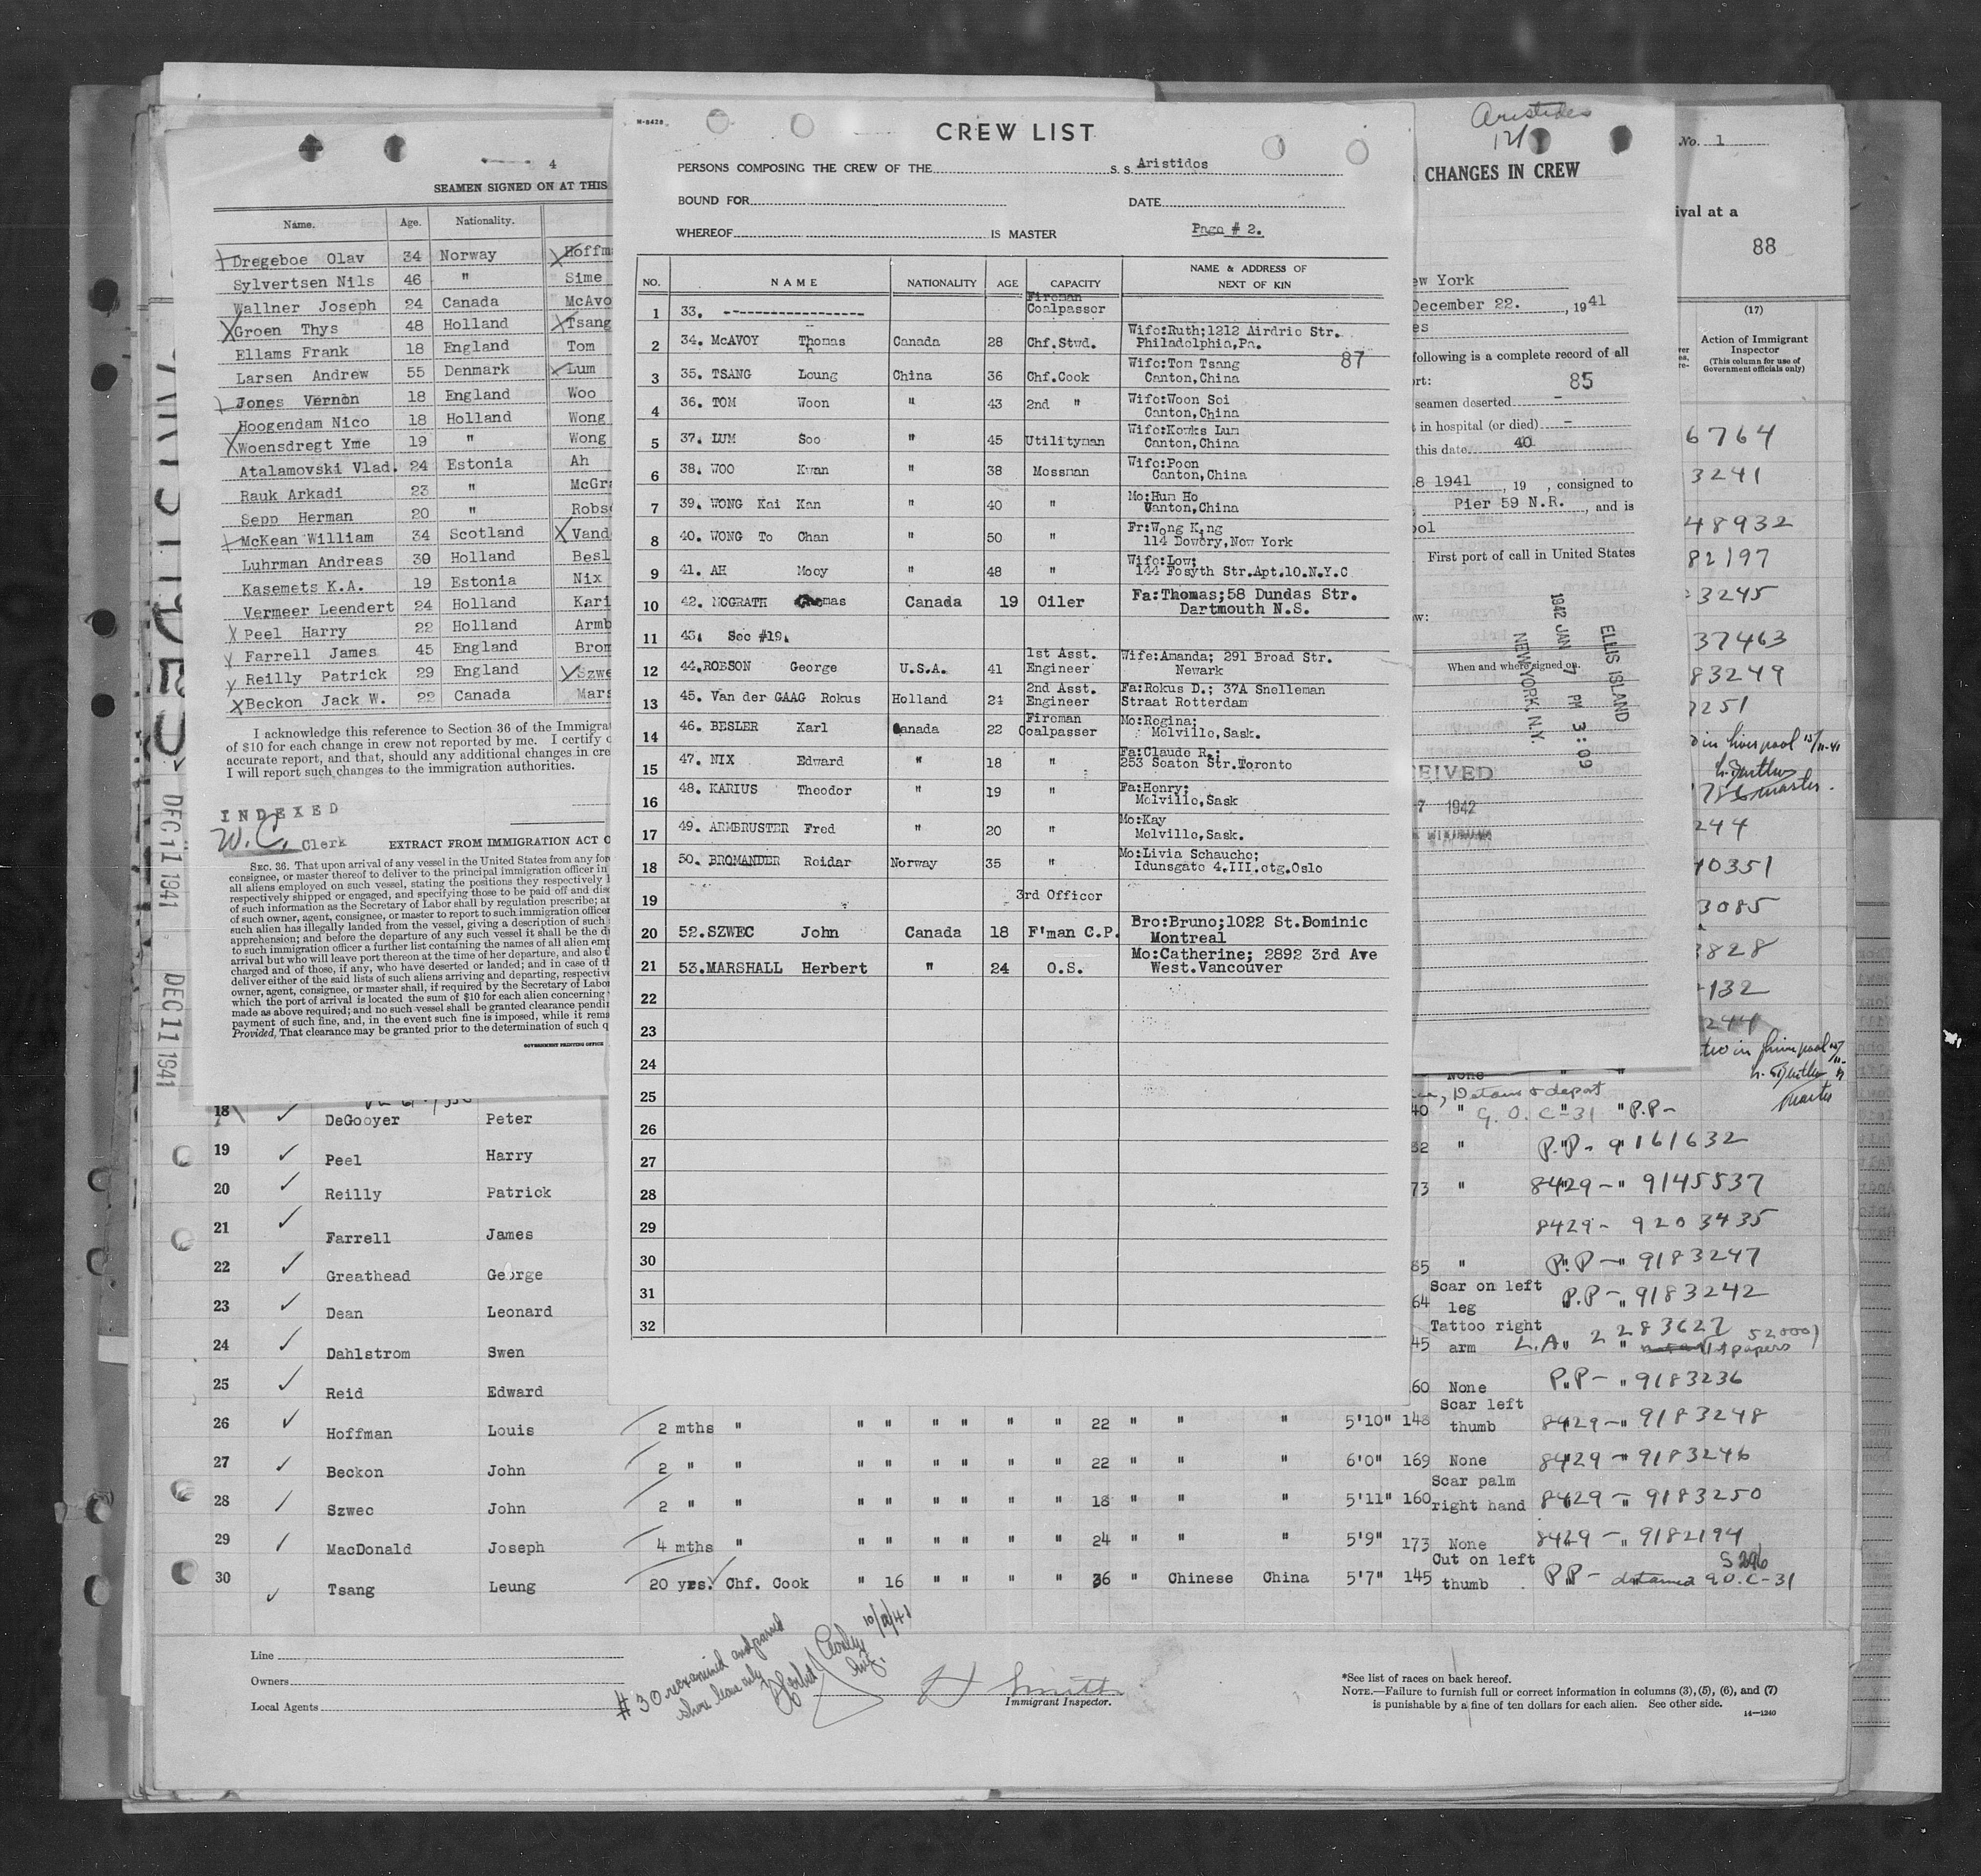 4
SEAMEN SIGNED ON AT THIS
Name. Age. Nationality.
Dregeboe Olav 34 Norway Hoffm
Sylvertsen Nils 46 " Sime
Wallner Joseph 24 Canada McAvo
Groen Thys 48 Holland Tsang
Ellams Frank 18 England Tom
Larsen Andrew 55 Denmark Lum
Jones Vernon 18 England Woo
Hoogendam Nico 18 Holland Wong
Woensdregt Yme 19 " Wong
Atalamovski Vlad. 24 Estonia Ah
Rauk Arkadi 23 " McGr
Sepp Herman 20 " Robs
McKean William 34 Scotland Vand
Luhrman Andreas 39 Holland Besl
Kasemets K.A. 19 Estonia Nix
Vermeer Leendert 24 Holland Kari
Peel Harry 22 Holland Armb
Farrell James 45 England Brom
Reilly Patrick 29 England Szwe
Beckon Jack W. 22 Canada Mars
I acknowledge this reference to Section 36 of the Immigra
of $10 for each change in crew not reported by me. I certify
accurate report, and that, should any additional changes in cre
I will report such changes to the immigration authorities.
INDEXED
W. C. Clerk
EXTRACT FROM IMMIGRATION ACT O
SEC. 36. That upon arrival of any vessel in the United States from any for
consignee, or master thereof to deliver to the principal immigration officer in
all aliens employed on such vessel, stating the positions they respectively
respectively shipped or engaged, and specifying those to be paid off and disc
of such information as the Secretary of Labor shall by regulation prescribe; a
of such owner, agent, consignee, or master to report to such immigration officer
such alien has illegally landed from the vessel, giving a description of such
apprehension; and before the departure of any such vessel it shall be the d
to such immigration officer a further list containing the names of all alien emp
arrival but who will leave port thereon at the time of her departure, and also t
charged and of those, if any, who have deserted or landed; and in case of th
deliver either of the said lists of such aliens arriving and departing, respective
owner, agent, consignee, or master shall, if required by the Secretary of Labor
which the port of arrival is located the sum of $10 for each alien concerning
made as above required; and no such vessel shall be granted clearance pendi
payment of such fine, and, in the event such fine is imposed, while it rema
Provided, That clearance may be granted prior to the determination of such q
GOVERNMENT PRINTING OFFICE
DEC 11 1941
DEC 11 1941
CREW LIST
PERSONS COMPOSING THE CREW OF THE S.S. Aristidos
BOUND FOR DATE
WHEREOF IS MASTER Page # 2.
NO. NAME NATIONALITY AGE CAPACITY NAME & ADDRESS OF NEXT OF KIN
1 33. ------------------ Fireman Coalpasser
2 34. McAVOY Thomas Canada 28 Chf.Stwd. Wife:Ruth;1212 Airdrie Str. Philadelphia,Pa.
87
3 35. TSANG Leung China 36 Chf.Cook Wife:Tom Tsang Canton,China
4 36. TOM Woon " 43 2nd " Wife:Woon Soi Canton,China
5 37. LUM Soo " 45 Utilityman Wife:Kowks Lum Canton,China
6 38. WOO Kwan " 38 Messman Wife:Poon Canton,China
7 39. WONG Kai Kan " 40 " Mo:Hum Ho Canton,China
8 40. WONG To Chan " 50 " Fr:Wong King 114 Bowery,New York
9 41. AH Mooy " 48 " Wife:Low; 144 Fosyth Str.Apt.10.N.Y.C
10 42. MCGRATH Thomas Canada 19 Oiler Fa:Thomas;58 Dundas Str. Dartmouth N.S.
11 43. See #19.
12 44.ROBSON George U.S.A. 41 1st Asst. Engineer Wife:Amanda; 291 Broad Str. Newark
13 45. Van der GAAG Rokus Holland 24 2nd Asst. Engineer Fa:Rokus D.; 37A Snelleman Straat Rotterdam
14 46. BESLER Karl Canada 22 Fireman Coalpasser Mo:Regina; Melville,Sask.
15 47. NIX Edward " 18 " Fa:Claude R.; 253 Seaton Str.Toronto
16 48. KARIUS Theodor " 19 " Fa:Henry; Melville,Sask
17 49. ARMBRUSTER Fred " 20 " Mo:Kay Melville,Sask.
18 50. BROMANDER Reidar Norway 35 " Mo:Livia Schauche; Idunsgate 4.III.etg.Oslo
19 3rd Officer
20 52.SZWEC John Canada 18 F'man C.P. Bro:Bruno;1022 St.Dominic Montreal
21 53.MARSHALL Herbert " 24 O.S. Mo:Catherine; 2892 3rd Ave West.Vancouver
22
23
24
25
26
27
28
29
30
31
32
Aristides
12/
CHANGES IN CREW
ew York
December 22. , 1941
es
following is a complete record of all
rt: 85
seamen deserted -
t in hospital (or died) -
this date 40
8 1941 , 19 , consigned to
Pier 59 N.R. , and is
ool
First port of call in United States
w:
When and where signed on.
1942 JAN 7 PM 3:09
ELLIS ISLAND
NEW YORK, N.Y.
EIVED
7 1942
No. 1
ival at a
88
(17)
Action of Immigrant Inspector
(This column for use of Government officials only)
6764
3241
48932
82197
3245
37463
83249
7251
in Liverpool
master.
244
10351
3085
3828
132
244
in Liverpool
master
None " "
Detain & deport
18 DeGooyer Peter 40 " G.O. C-31 " P.P-
19 Peel Harry 52 " P.P- 9161632
20 Reilly Patrick 73 " 8429 - " 9145537
21 Farrell James 8429 - 9203435
22 Greathead George 85 " P.P - " 9183247
23 Dean Leonard 64 Scar on left leg P.P - " 9183242
24 Dahlstrom Swen 45 Tattoo right arm L.A. 2283627 1st papers
25 Reid Edward 60 None P.P - " 9183236
26 Hoffman Louis 2 mths " " " " " " " 22 " " " 5'10" 148 Scar left thumb 8429 - " 9183248
27 Beckon John 2 " " " " " " " " 22 " " " 6'0" 169 None 8429 - " 9183246
28 Szwec John 2 " " " " " " " " 18 " " " 5'11" 160 Scar palm right hand 8429 - " 9183250
29 MacDonald Joseph 4 mths " " " " " " " 24 " " " 5'9" 173 None 8429 - " 9182194
30 Tsang Leung 20 yrs. Chf. Cook " 16 " " " " 36 " Chinese China 5'7" 145 Cut on left thumb P.P - detained G.O. C-31
Line
Owners
Local Agents
#30 reexamined and passed
shore leave only
10/12/41
H Smith
Immigrant Inspector.
*See list of races on back hereof.
NOTE.—Failure to furnish full or correct information in columns (3), (5), (6), and (7)
is punishable by a fine of ten dollars for each alien. See other side.
14—1240